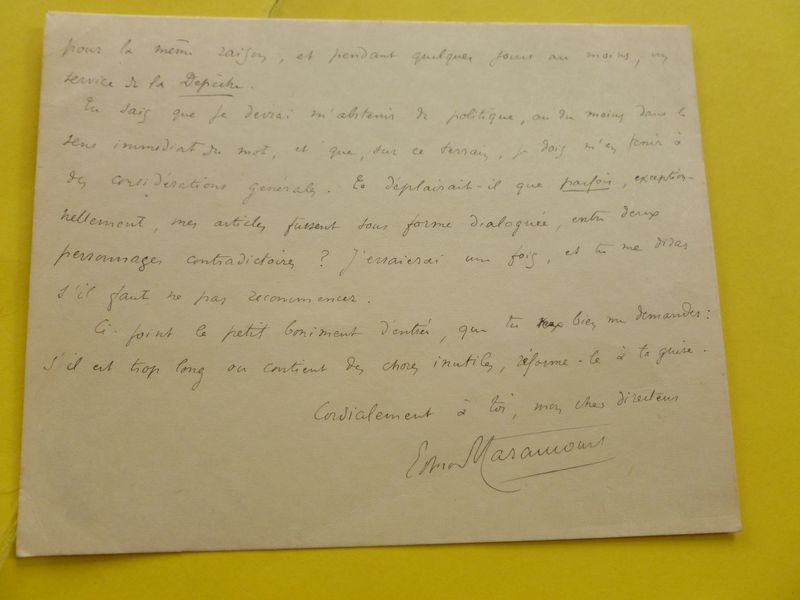 pour la même raison, et pendant quelques jours au moins, un
service de la Dépêche.
Tu sais que je devrai m'abstenir de politique, ou du moins dans le
sens immédiat du mot, et que, sur ce terrain, je dois m'en tenir à
des considérations générales. Te déplairait-il que parfois, exception-
nellement, mes articles fussent sous forme dialoguée, entre deux
personnages contradictoires ? J'essaierai une fois, et tu me diras
s'il faut ne pas recommencer.
Ci-joint le petit boniment d'entrée, que tu bien me demander :
s'il est trop long ou contient des choses inutiles, réforme-le à ta guise.
Cordialement à toi, mon cher directeur
Edmond Haraucourt